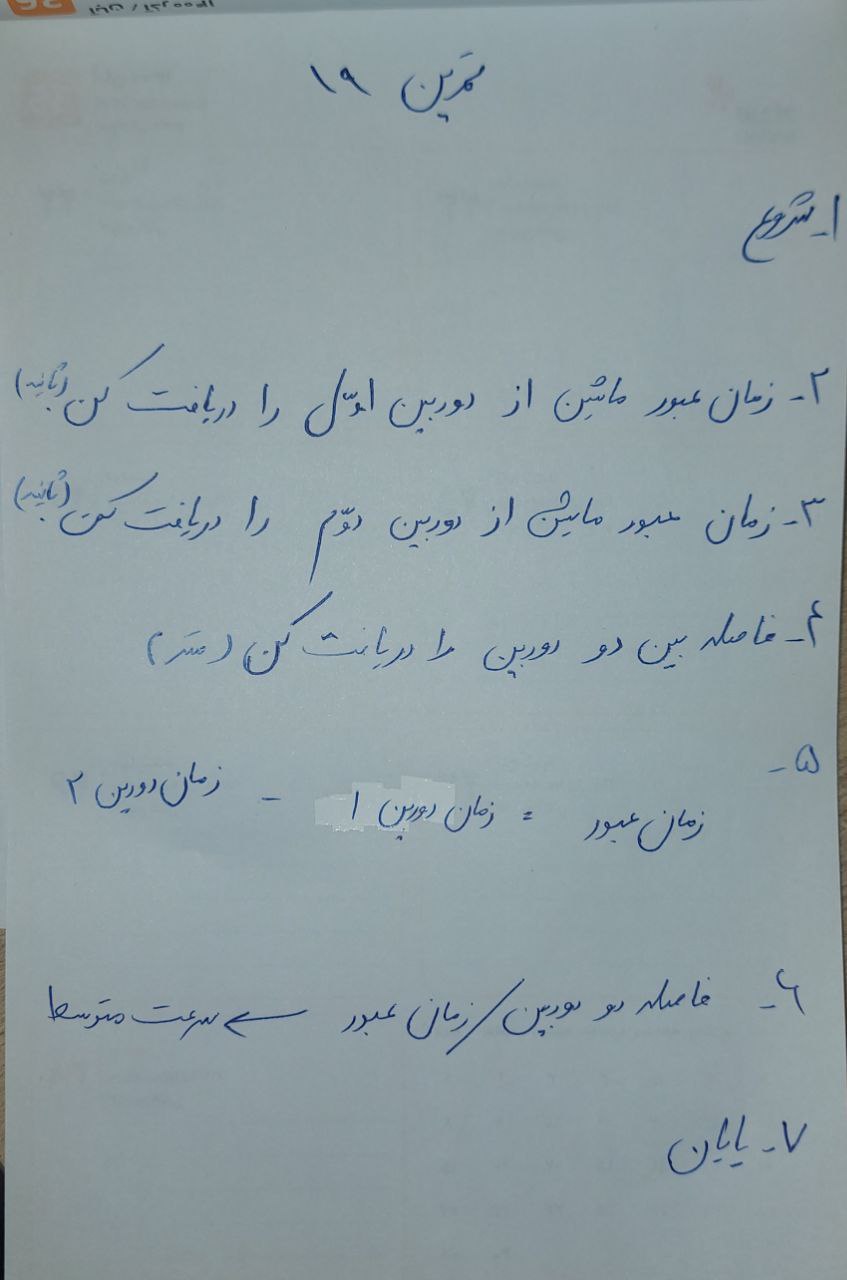 تمرین ۱۹
۱- شروع
۲- زمان عبور ماشین از دوربین اوّل را دریافت کن. (ثانیه)
۳- زمان عبور ماشین از دوربین دوّم را دریافت کن. (ثانیه)
۴- فاصله بین دو دوربین را دریافت کن (متر)
۵-
زمان عبور = زمان دوربین ۱ - زمان دوربین ۲
۶- فاصله دو دوربین / زمان عبور ← سرعت متوسط
۷- پایان